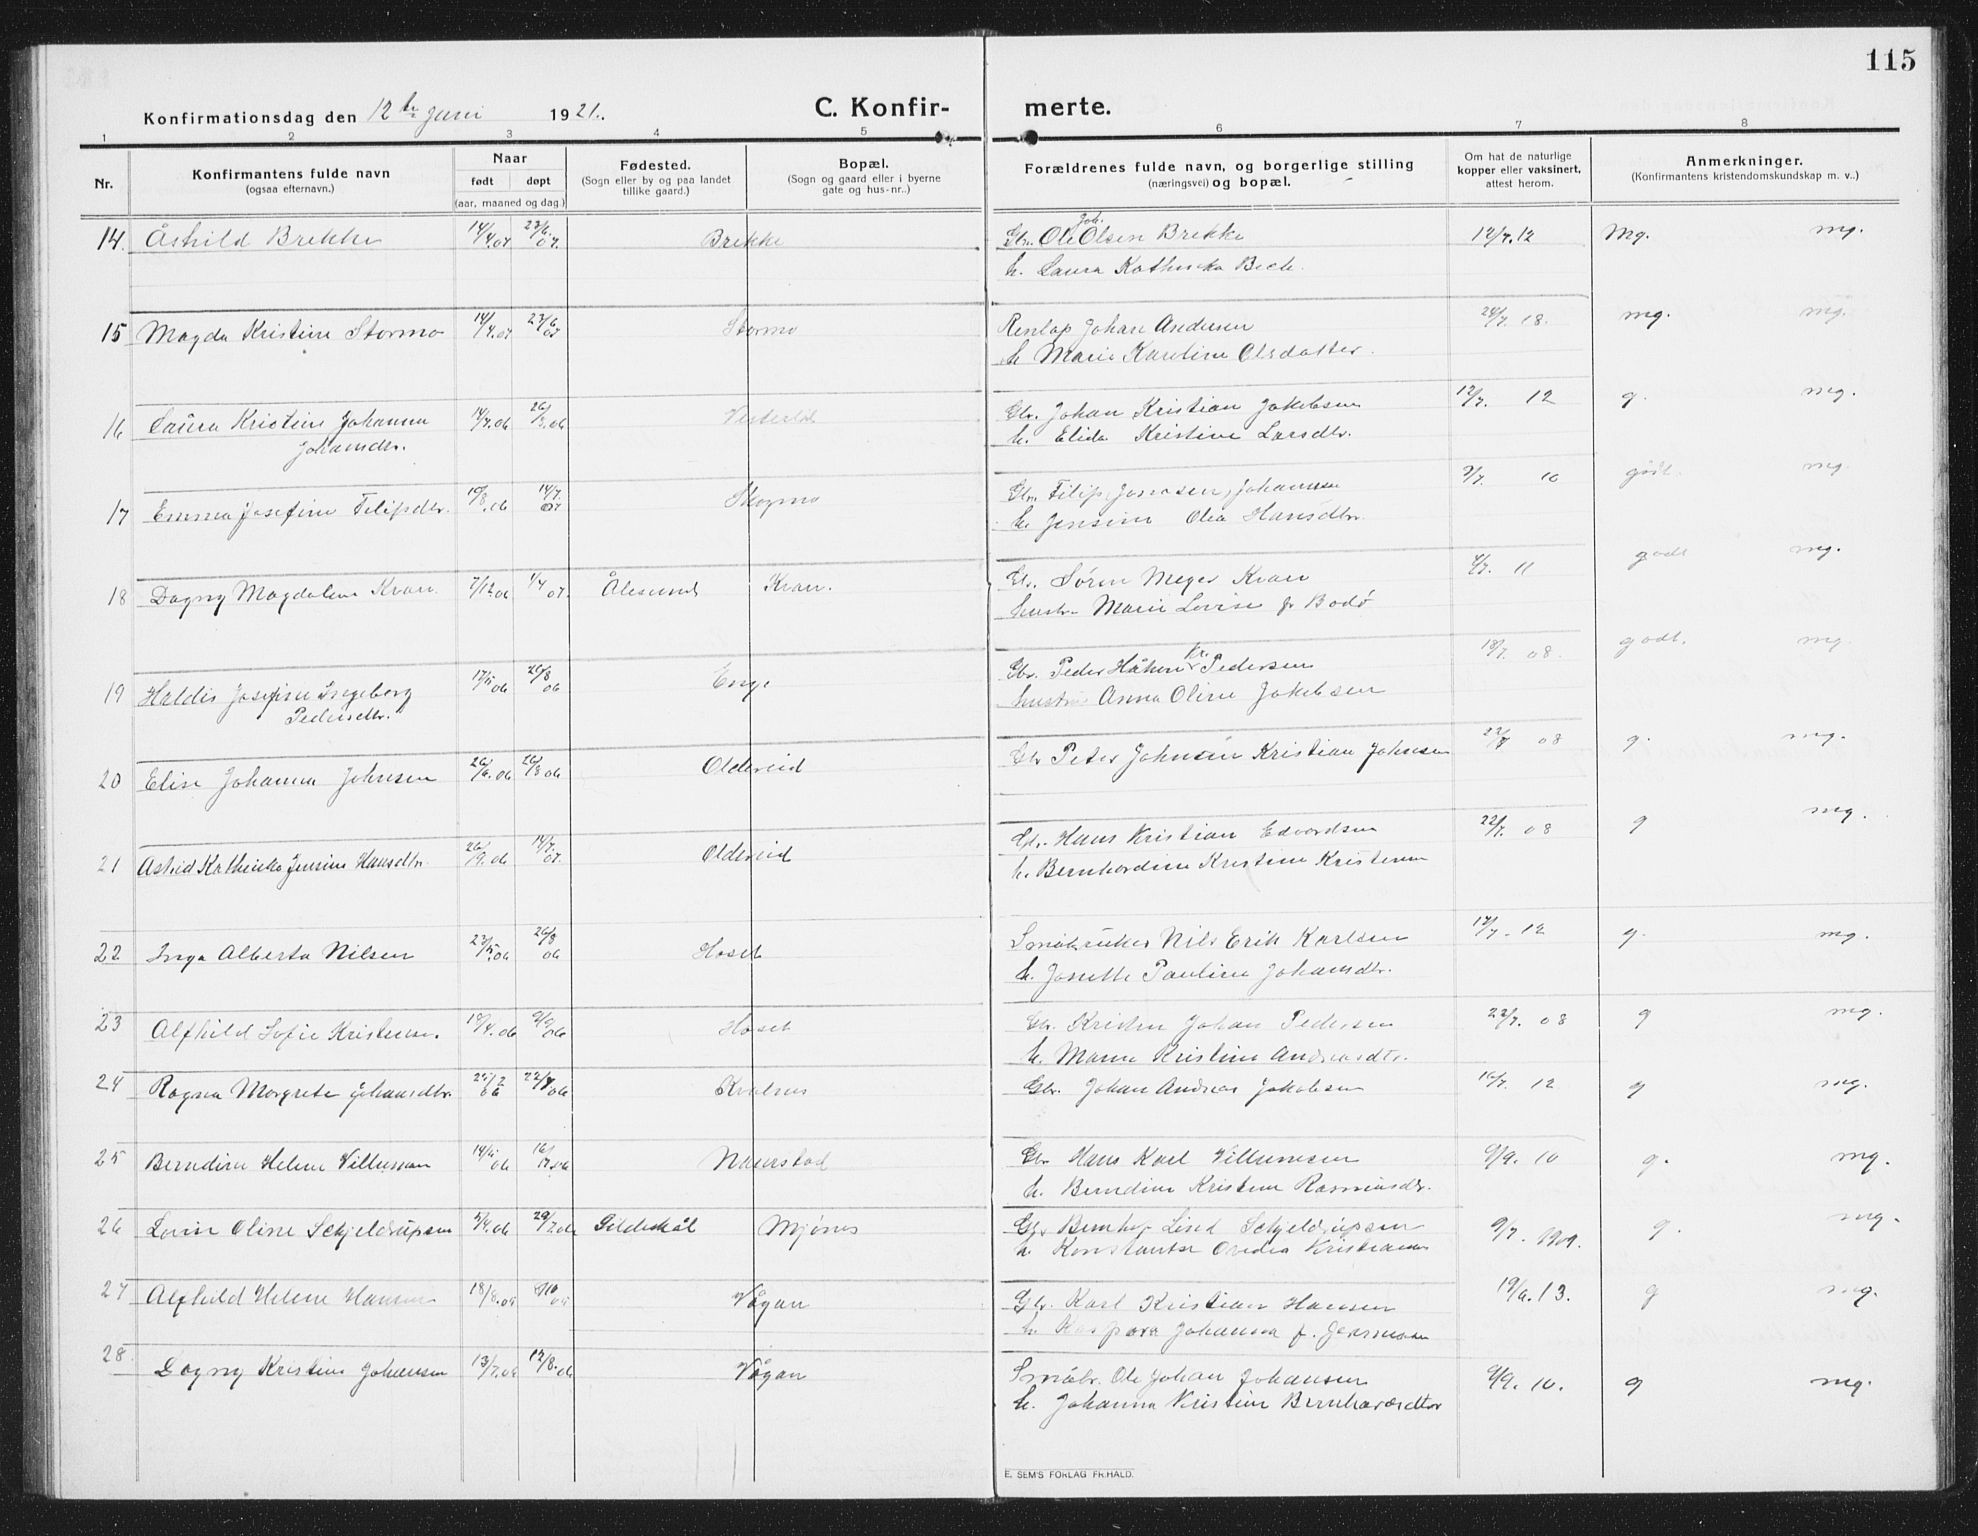 115
Konfirmationsdag den 12te juni 1921.
C. Konfirmerte.
1 2 3 4 5 6 7 8
Nr.
Konfirmantens fulde navn
(ogsaa efternavn.)
Naar
født døpt
(aar, maaned og dag.)
Fødested.
(Sogn eller by og paa landet
tillike gaard.)
Bopæl.
(Sogn og gaard eller i byerne
gate og hus-nr..)
Forældrenes fulde navn, og borgerlige stilling
(næringsvei) og bopæl.
Om hat de naturlige
kopper eller vaksinert,
attest herom.
Anmerkninger.
(Konfirmantens kristendomskundskap m. v..)
14. Åshild Brekke 14/4.07 23/6.07. Brekke Gbr. Ole Joh. Olsen Brekke 12/7.12 Mg. mg.
h. Laura Kathinka Bech.
15 Magda Kristine Stormo 14/4.07 23/6 07 Stormo Johan Andersen 24/7 18. mg. mg.
h Marie Karoline Olsdatter.
16 Laura Kristine Johanna 14/7.06 26/8.06 Gbr. Johan Kristian Jakobsen 12/7. 12 g. mg.
Johansdtr. h. Elida Kristine Larsdtr.
17 Emma Josefine Filipsdtr. 10/8.06 14/7. 07 Skogmo Gbr. Filip Jonasen, Johannsen 9/7. 10 godt. mg.
h. Jensine Olea Hansdtr.
18 Dagny Magdalene Kvan. 7/12 06 1/4 07. Ålesund Kvan. Gbr. Søren Meyer Kvan 4/7. 11 godt mg.
hustr. Marie Lovise fr Bodø
19 Haldis Josefine Ingeborg 17/11 06 26/8 06 Enge Gbr. Peder Håkon Kr. Pedersen 18/7. 08. godt. mg.
Pedersdtr. hustru Anna Oline Jakobsen
20 Elise Johanna Johnsen 26/6.06 26/8 06 Oldereid Gbr Peter Johnsen Kristian Johnsen 22/7 08 g. mg.
21 Astrid Kathinka Jensine Hansdtr. 26/9.06 14/7. 07. Oldereid Gbr. Hans Kristian Edvardsen 22/7. 08 g mg.
h. Bernhardine Kristine Kristensen
22 Inga Alberta Nilsen 23/5.06 26/8 06 Hoset Småbruker Nils Erik Karlsen 17/7. 12 g. mg.
h. Jonette Pauline Johansdtr.
23 Alfhild Sofie Kristensen. 18/4.06 9/9 06 Hoset Gbr. Kristen Johan Pedersen 22/7. 08 g mg.
h. Marna Kristine Andreasdtr.
24 Ragna Margrete Johansdtr. 25/2 06 22/7 06 Kvalnes Gbr. Johan Andreas Jakobsen 16/7. 12 g mg.
25 Berndine Helene Villumsen 14/11 06 Naurstad Gbr Hans Karl Villumsen 9/9. 10 g. mg.
h. Berndine Kristine Rasmusdtr.
26 Lovise Oline Schjeldrupsen 5/4.06 29/7.06 Gildeskål Mjønes Schjeldrupsen 9/7. 1909. g. mg.
27 Alfhild Helene Hansen 18/8.05 8/10 05 Vågan Gbr. Karl Kristian Hansen 19/6.13. g mg.
h. Kaspara Johanna f. Jensen
28 Dagny Kristine Johansen 13/7.06 12/8.06 Vågan Småbr. Ole Johan Johansen 9/9. 10. g mg.
h. Johanna Kristine Bernhardsdtr
E. SEM'S FORLAG FR.HALD.